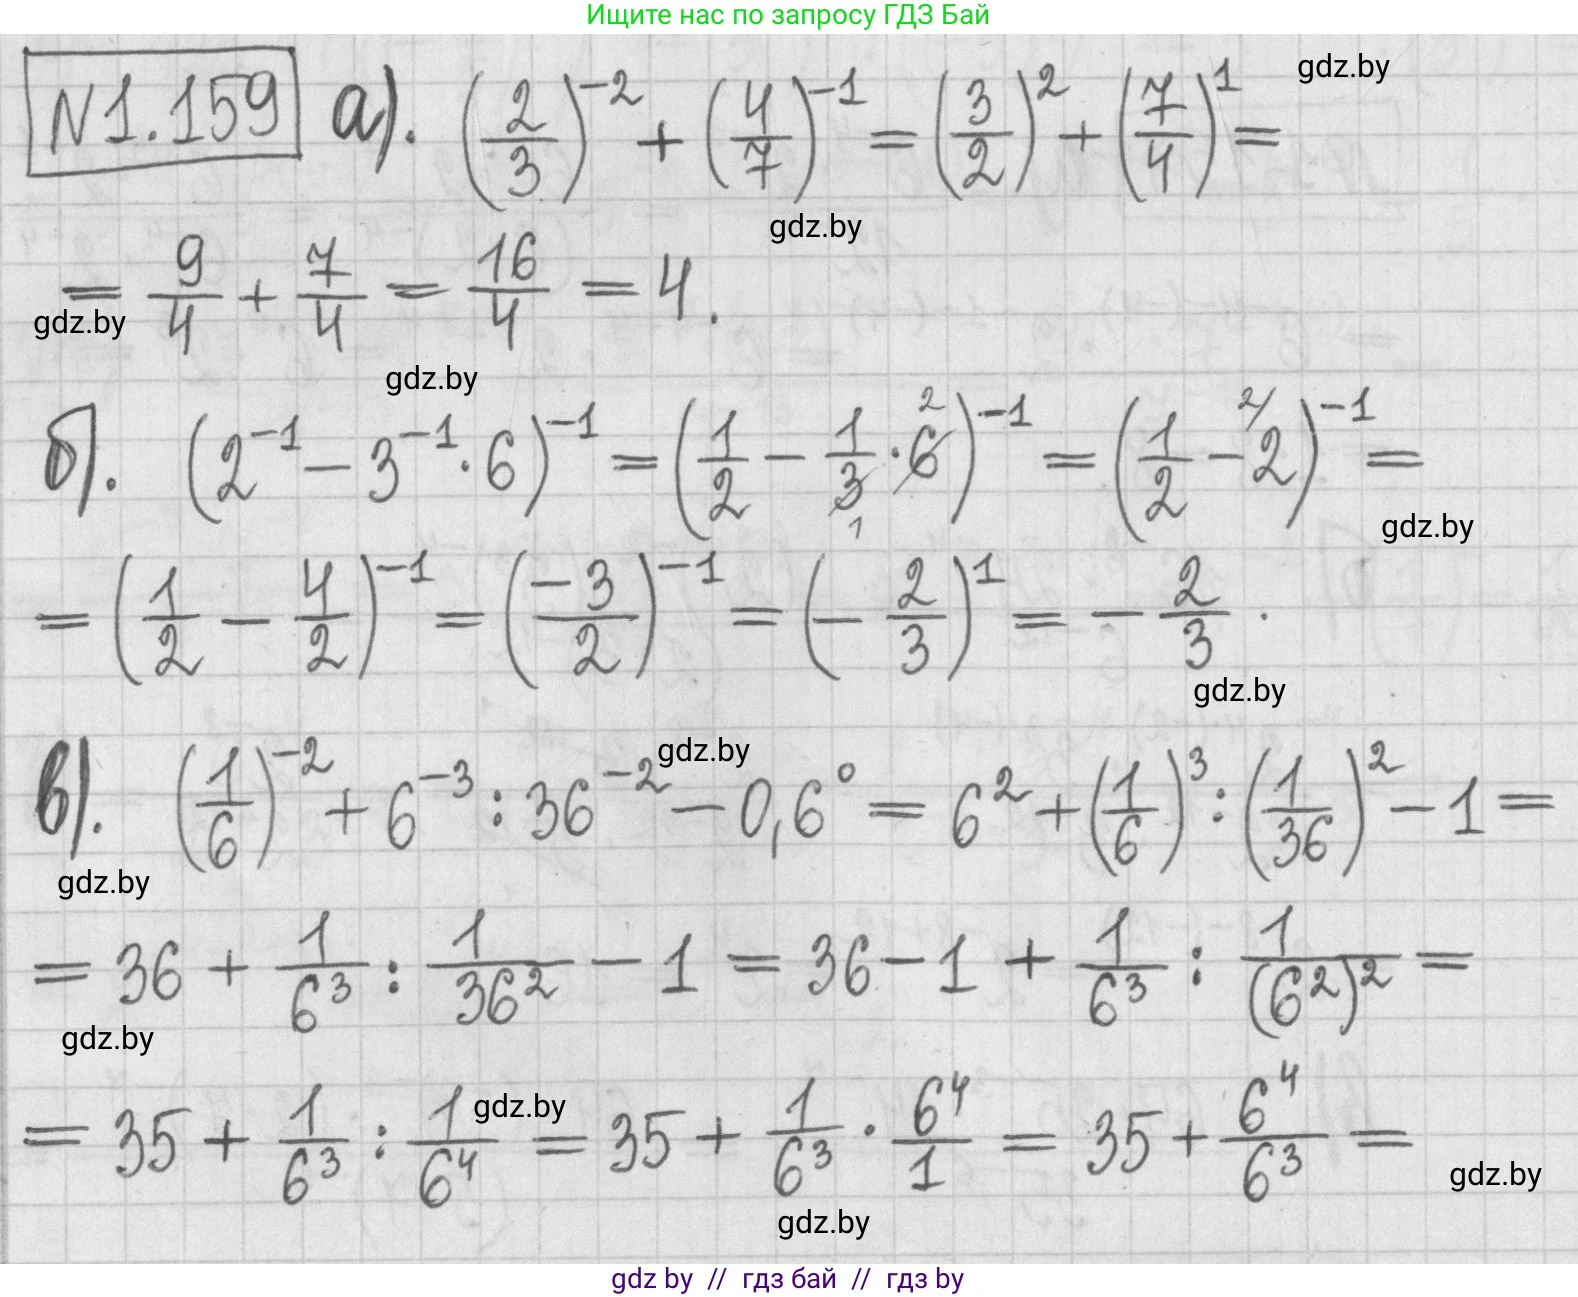 Ищите нас по запросу ГДЗ Бай
N1.159 а). (2/3)^-2 + (4/7)^-1 = (3/2)^2 + (7/4)^1 =
gdz.by
gdz.by
= 9/4 + 7/4 = 16/4 = 4.
gdz.by
gdz.by
б). (2^-1 - 3^-1 · 6)^-1 = (1/2 - 1/3 · 6)^-1 = (1/2 - 2)^-1 =
2
1
2/
gdz.by
= (1/2 - 4/2)^-1 = (-3/2)^-1 = (- 2/3)^1 = - 2/3 .
gdz.by
gdz.by
в). (1/6)^-2 + 6^-3 : 36^-2 - 0,6^0 = 6^2 + (1/6)^3 : (1/36)^2 - 1 =
gdz.by
= 36 + 1/6^3 : 1/36^2 - 1 = 36 - 1 + 1/6^3 : 1/(6^2)^2 =
gdz.by
gdz.by
= 35 + 1/6^3 : 1/6^4 = 35 + 1/6^3 · 6^4/1 = 35 + 6^4/6^3 =
gdz.by
gdz.by
gdz by // гдз бай // гдз by